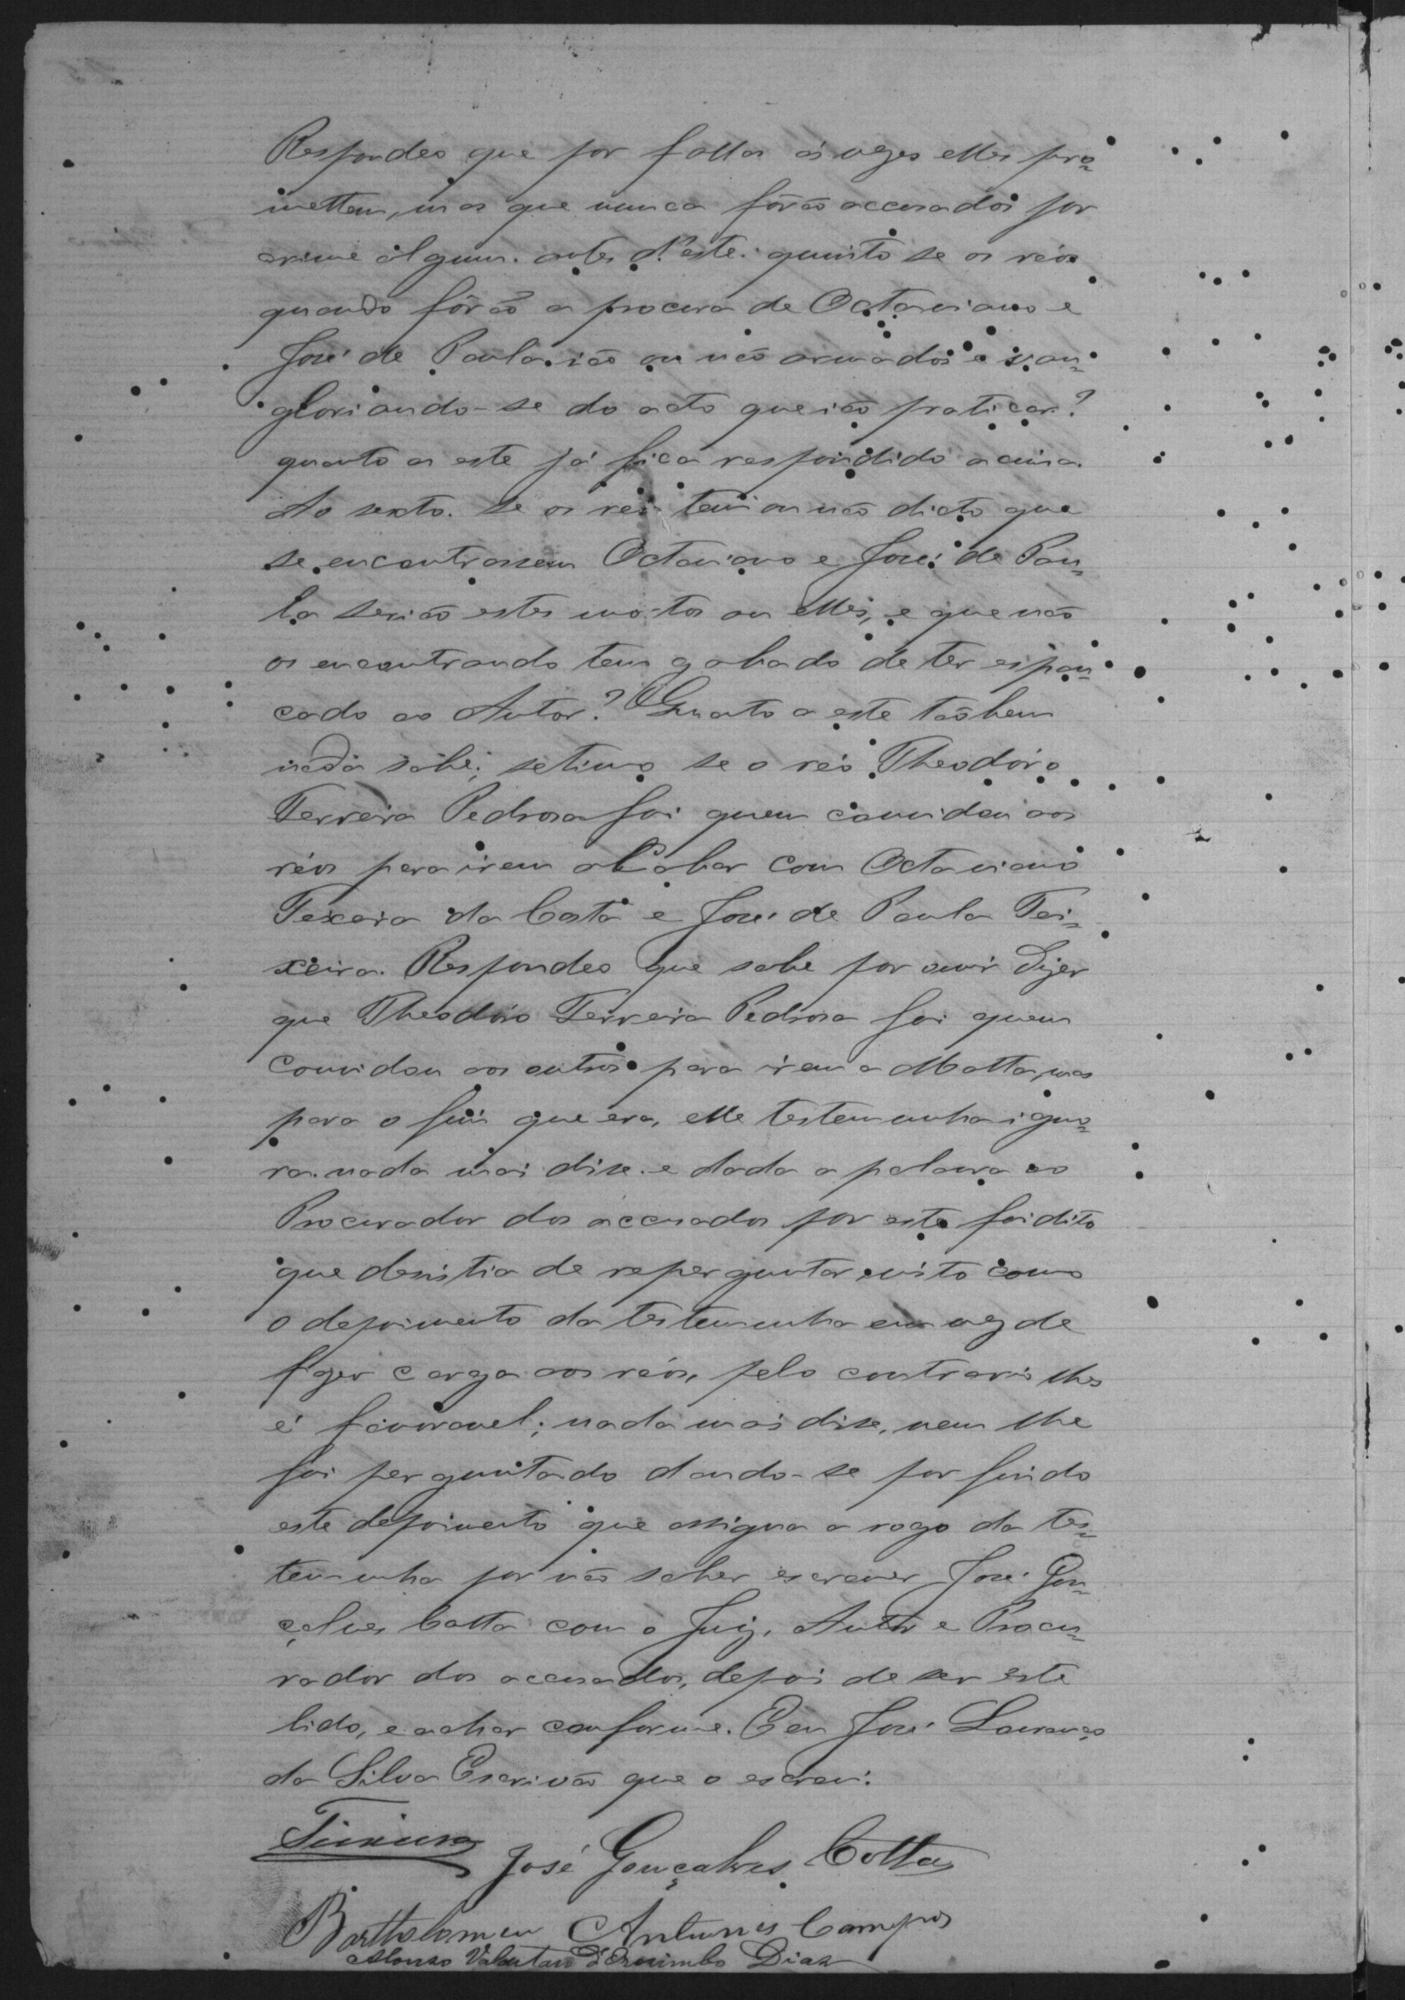 Respondeo que por falla ás vezes elles pro-
mettem, mas que nunca fôrão accusados por
crime algum. antes d'este. quinto se os réos
quando fôrão a procura de Octaviano e
José de Paula. ião ou não armados e van-
gloriando-se do acto que ião praticar?
quanto a este já fica respondido acima.
Ao sexto. se os réos tem ou não dicto que
se encontrassem Octaviano e José de Pau-
la serião estes mortos ou elles, e que não
os encontrando tem gabado de ter espan-
cado ao Autor? Quanto a este tãobem
nada sabe; setimo se o réo Theodóro
Ferreira Pedrosa foi quem convidou aos
réos para irem acabar com Octaviano
Texeira da Costa e José de Paula Tei-
xeira. Respondeo que sabe por ouvir dizer
que Theodóro Ferreira Pedrosa foi quem
convidou aos outros para irem a Matta, mas
para o fim que era, elle testemunha igno-
ra. nada mais disse. e dada a palavra ao
Procurador dos accusados por este foi dito
que desistia de reperguntar, visto como
o depoimento da testemunha em vez de
fazer carga aos réos, pelo contrario lhes
é favoravel; nada mais disse, nem lhe
foi perguntado dando-se por findo
este depoimento que assigna a rogo da tes-
temunha por não saber escrever José Gon-
çalves Cotta com o Juiz, Autor e Procu-
rador dos accusados, depois de ser este
lido, e achar conforme. Eu José Lourenço
da Silva Escrivão que o escrevi.
José Gonçalves Cotta
Bartholomeu Antunes Campos
Dias